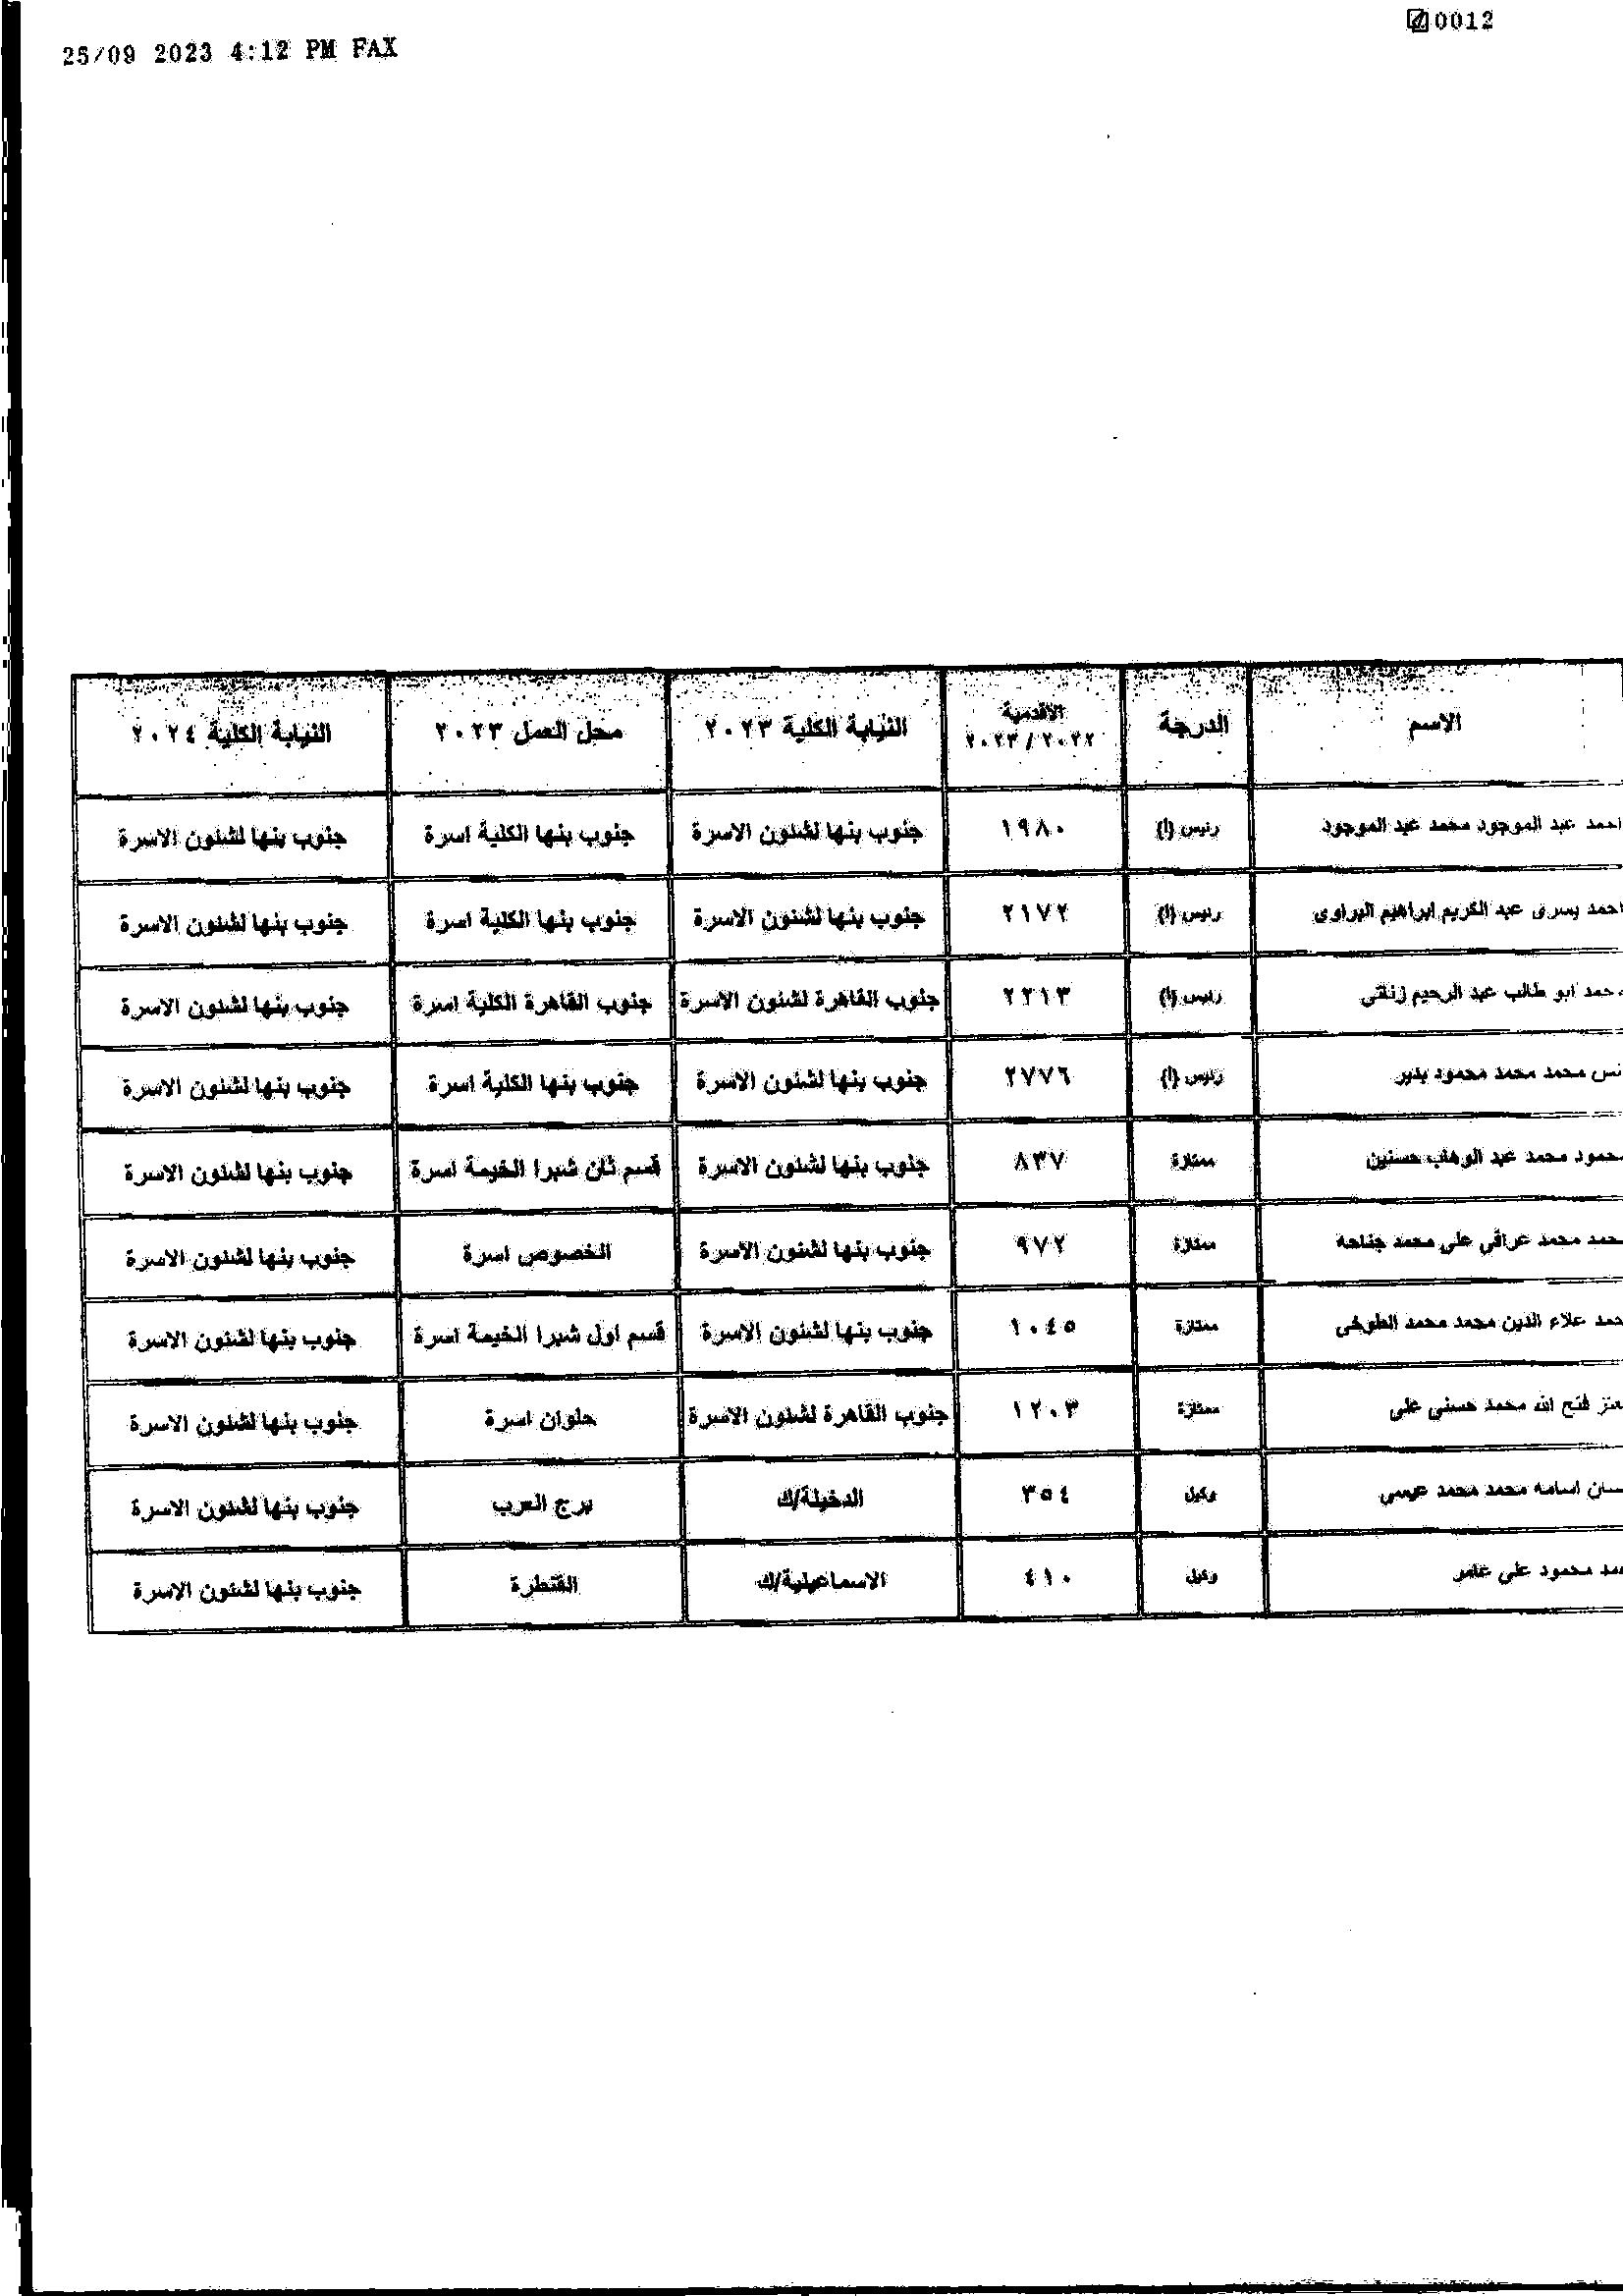 25/09 2023 4:12 PM FAX
0012
الاسم الدرجة الأقدمية ٢٠٢٢/٢٠٢٣ النيابة الكلية ٢٠٢٣ محل العمل ٢٠٢٣ النيابة الكلية ٢٠٢٤
احمد عبد الموجود محمد عبد الموجود رئيس (أ) ١٩٨٠ جنوب بنها لشئون الاسرة جنوب بنها الكلية اسرة جنوب بنها لشئون الاسرة
احمد يسرى عبد الكريم ابراهيم البراوى رئيس (أ) ٢١٧٢ جنوب بنها لشئون الاسرة جنوب بنها الكلية اسرة جنوب بنها لشئون الاسرة
ابو طالب عبد الرحيم زناتى رئيس (أ) ٢٢١٣ جنوب القاهرة لشئون الاسرة جنوب القاهرة الكلية اسرة جنوب بنها لشئون الاسرة
محمد محمد محمود بدير رئيس (أ) ٢٧٧٦ جنوب بنها لشئون الاسرة جنوب بنها الكلية اسرة جنوب بنها لشئون الاسرة
محمد عبد الوهاب حسنين ممتازة ٨٣٧ جنوب بنها لشئون الاسرة قسم ثان شبرا الخيمة اسرة جنوب بنها لشئون الاسرة
محمد عراقى على محمد جناحه ممتازة ٩٧٢ جنوب بنها لشئون الاسرة الخصوص اسرة جنوب بنها لشئون الاسرة
علاء الدين محمد محمد الطوخى ممتازة ١٠٤٥ جنوب بنها لشئون الاسرة قسم اول شبرا الخيمة اسرة جنوب بنها لشئون الاسرة
فتح الله محمد حسنى على ممتازة ١٢٠٣ جنوب القاهرة لشئون الاسرة حلوان اسرة جنوب بنها لشئون الاسرة
اسامه محمد محمد عيسى وكيل ٣٥٤ الدخيلة/ك برج العرب جنوب بنها لشئون الاسرة
محمود على عامر وكيل ٤١٠ الاسماعيلية/ك القنطرة جنوب بنها لشئون الاسرة